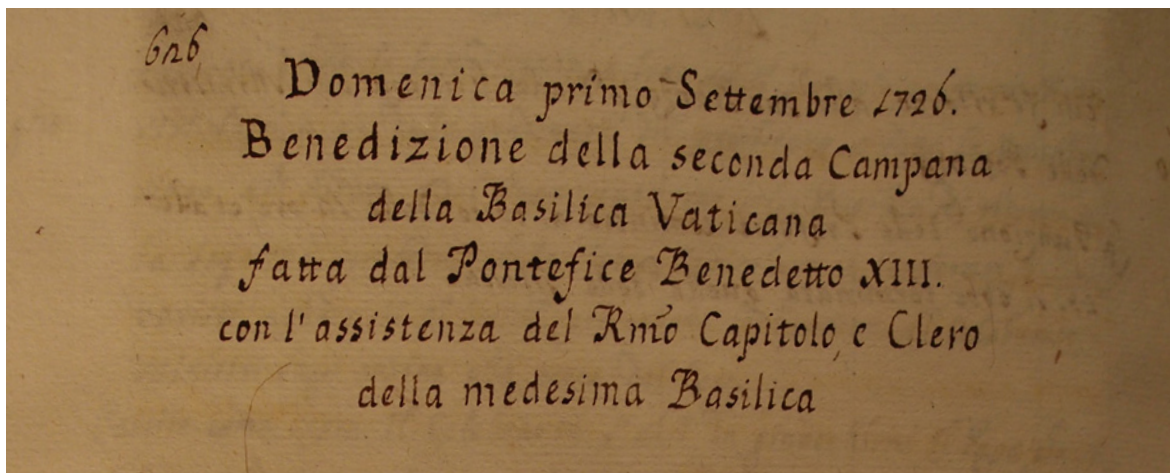 626
Domenica primo Settembre 1726.
Benedizione della seconda Campana
della Basilica Vaticana
fatta dal Pontefice Benedetto XIII.
con l'assistenza del Rmo Capitolo, e Clero
della medesima Basilica